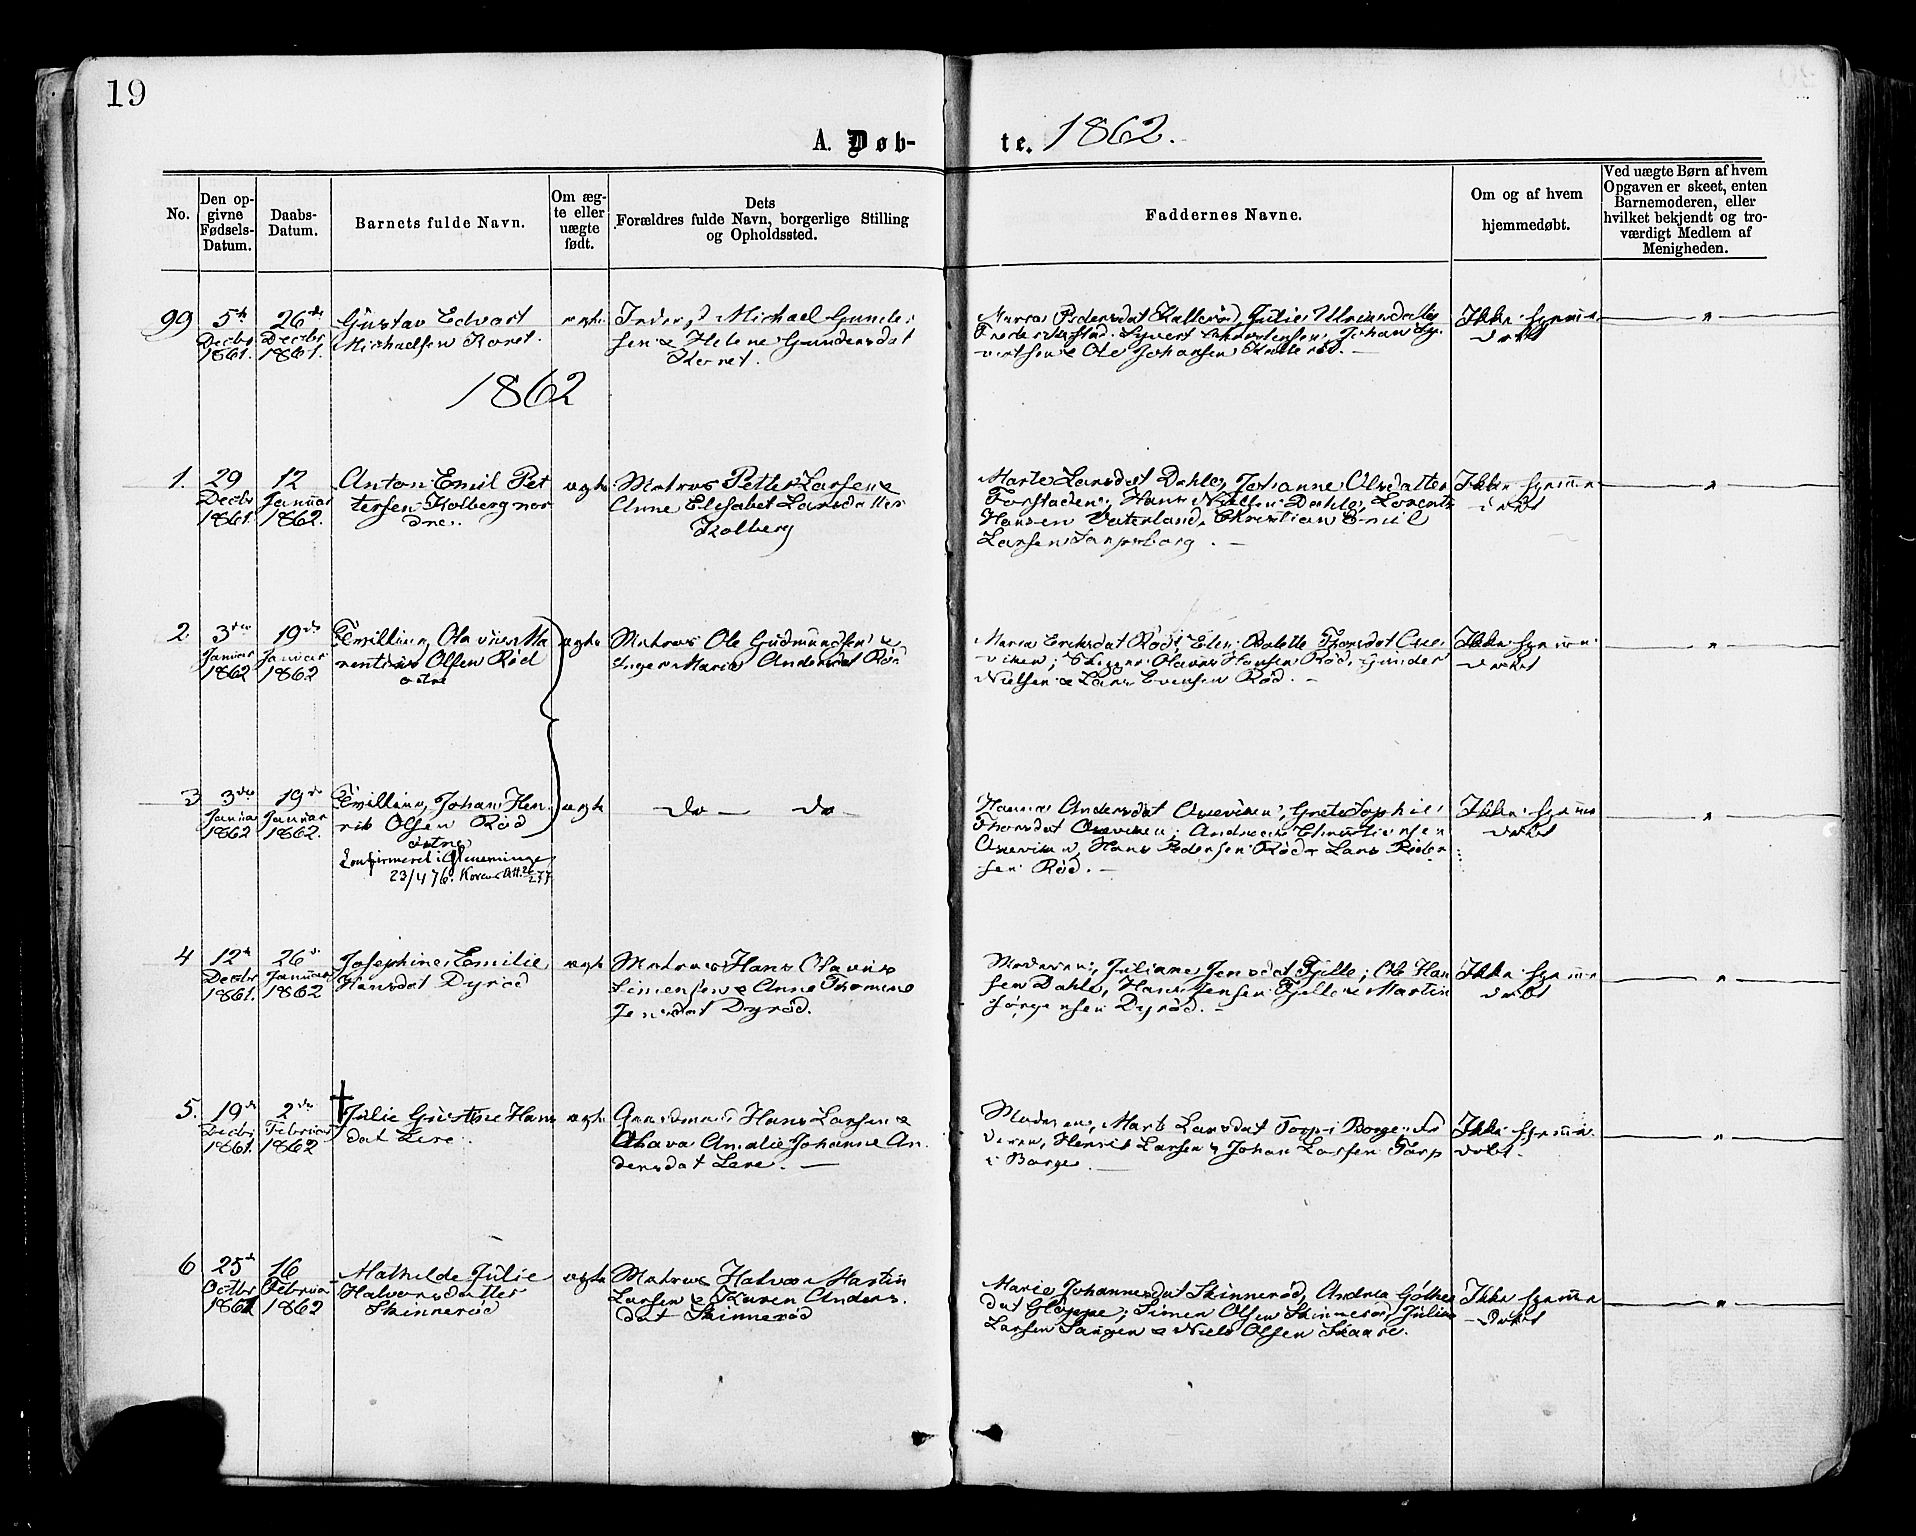 19
A. Døb-
te. 1862.
No.
Den op-
givne
Fødsels-
Datum.
Daabs-
Datum.
Barnets fulde Navn.
Om æg-
te eller
uægte
født.
Dets
Forældres fulde Navn, borgerlige Stilling
og Opholdssted.
Faddernes Navne.
Om og af hvem
hjemmedøbt.
Ved uægte Børn af hvem
Opgaven er skeet, enten
Barnemoderen, eller
hvilket bekjendt og tro-
værdigt Medlem af
Menigheden.
99
5te
Decbr
1861.
26de
Decbr
1861.
Gustav Edvart
Michaelsen
ægte
Michael Gunder
sen & Helene Gundersdat
Maria Pedersdat Kallerød, Julie
Frederikstad; Syvert Johan Sy
vertsen & Ole Johansen Kallerød. —
Ikke hjemme
døbt
"
1862
1.
29
Decbr
1861.
12
Januar
1862.
Anton Emil Pet
tersen Kolberg nor
dre.
ægte
Matros Petter Larsen &
Anne Elisabet Larsdatter
Kolberg
Marte Larsdat Dahle, Johanne Olsdatter
Forstaden; Hans Nielsen Dahle, Lorents
Hansen Vaterland, Christian Emil
Larsen Sarpsborg. —
Ikke hjemme
døbt
"
2
3die
Januar
1862
19de
Januar
1862
Tvilling, Olavus Ma
rentius Olsen Rød
østre
ægte
Matros Ole Gudmundsen &
Inger Maria Andersdat Rød
Maria Eriksdat Rød, Elen Bolette Thorsdat
viken; Olavus Hansen Rød, Gunder
Nielsen & Lars Evensen Rød. —
Ikke hjemme
døbt
"
3
3die
Januar
1862
19de
Januar
1862.
Tvilling, Johan Hen
rik Olsen Rød
østre
Konfirmeret i Glemminge
23/4 76.
ægte
do — do —
Andersdat Grete Sophie
Thorsdat Andreas Christiansen
Hans Pedersen Rød & Lars Peder
sen Rød. —
Ikke hjemme
døbt
"
4
12te
Decbr
1861.
26de
Januar
1862
Josephine Emilie
Hansdat Dyrød
ægte
Matros Hans Olavus
Simensen & Anne Thomine
Jensdat Dyrød.
Moderen, Juliane Jensdat Fjelle; Ole Han
sen Dahle, Hans Jensen Fjelle & Martin
Jørgensen Dyrød. —
Ikke hjemme
døbt
"
5.
19de
Decbr
1861.
2den
Februar
1862
Julie Gustine Hans
dat Lere.
ægte
Hans Larsen &
Olava Amalie Johanne An
dersdat Lere. —
Moderen, Marte Larsdat Torp i Borge; Fa
deren, Henrik Larsen & Johan Larsen Torp
i Borge. —
Ikke hjemme
døbt.
"
6
25de
Octbr
1861
16
Februar
1862
Mathilde Julie
Halvorsdatter
Skinnerød
ægte
Matros Halvor Martin
Larsen & Karen Anders
dat Skinnerød
Marie Johannesdat Skinnerød, Andrea
dat Gloppe; Simen Olsen Skinnerød, Julius
Larsen & Niels Olsen Skaare.
Ikke hjemme
døbt
"